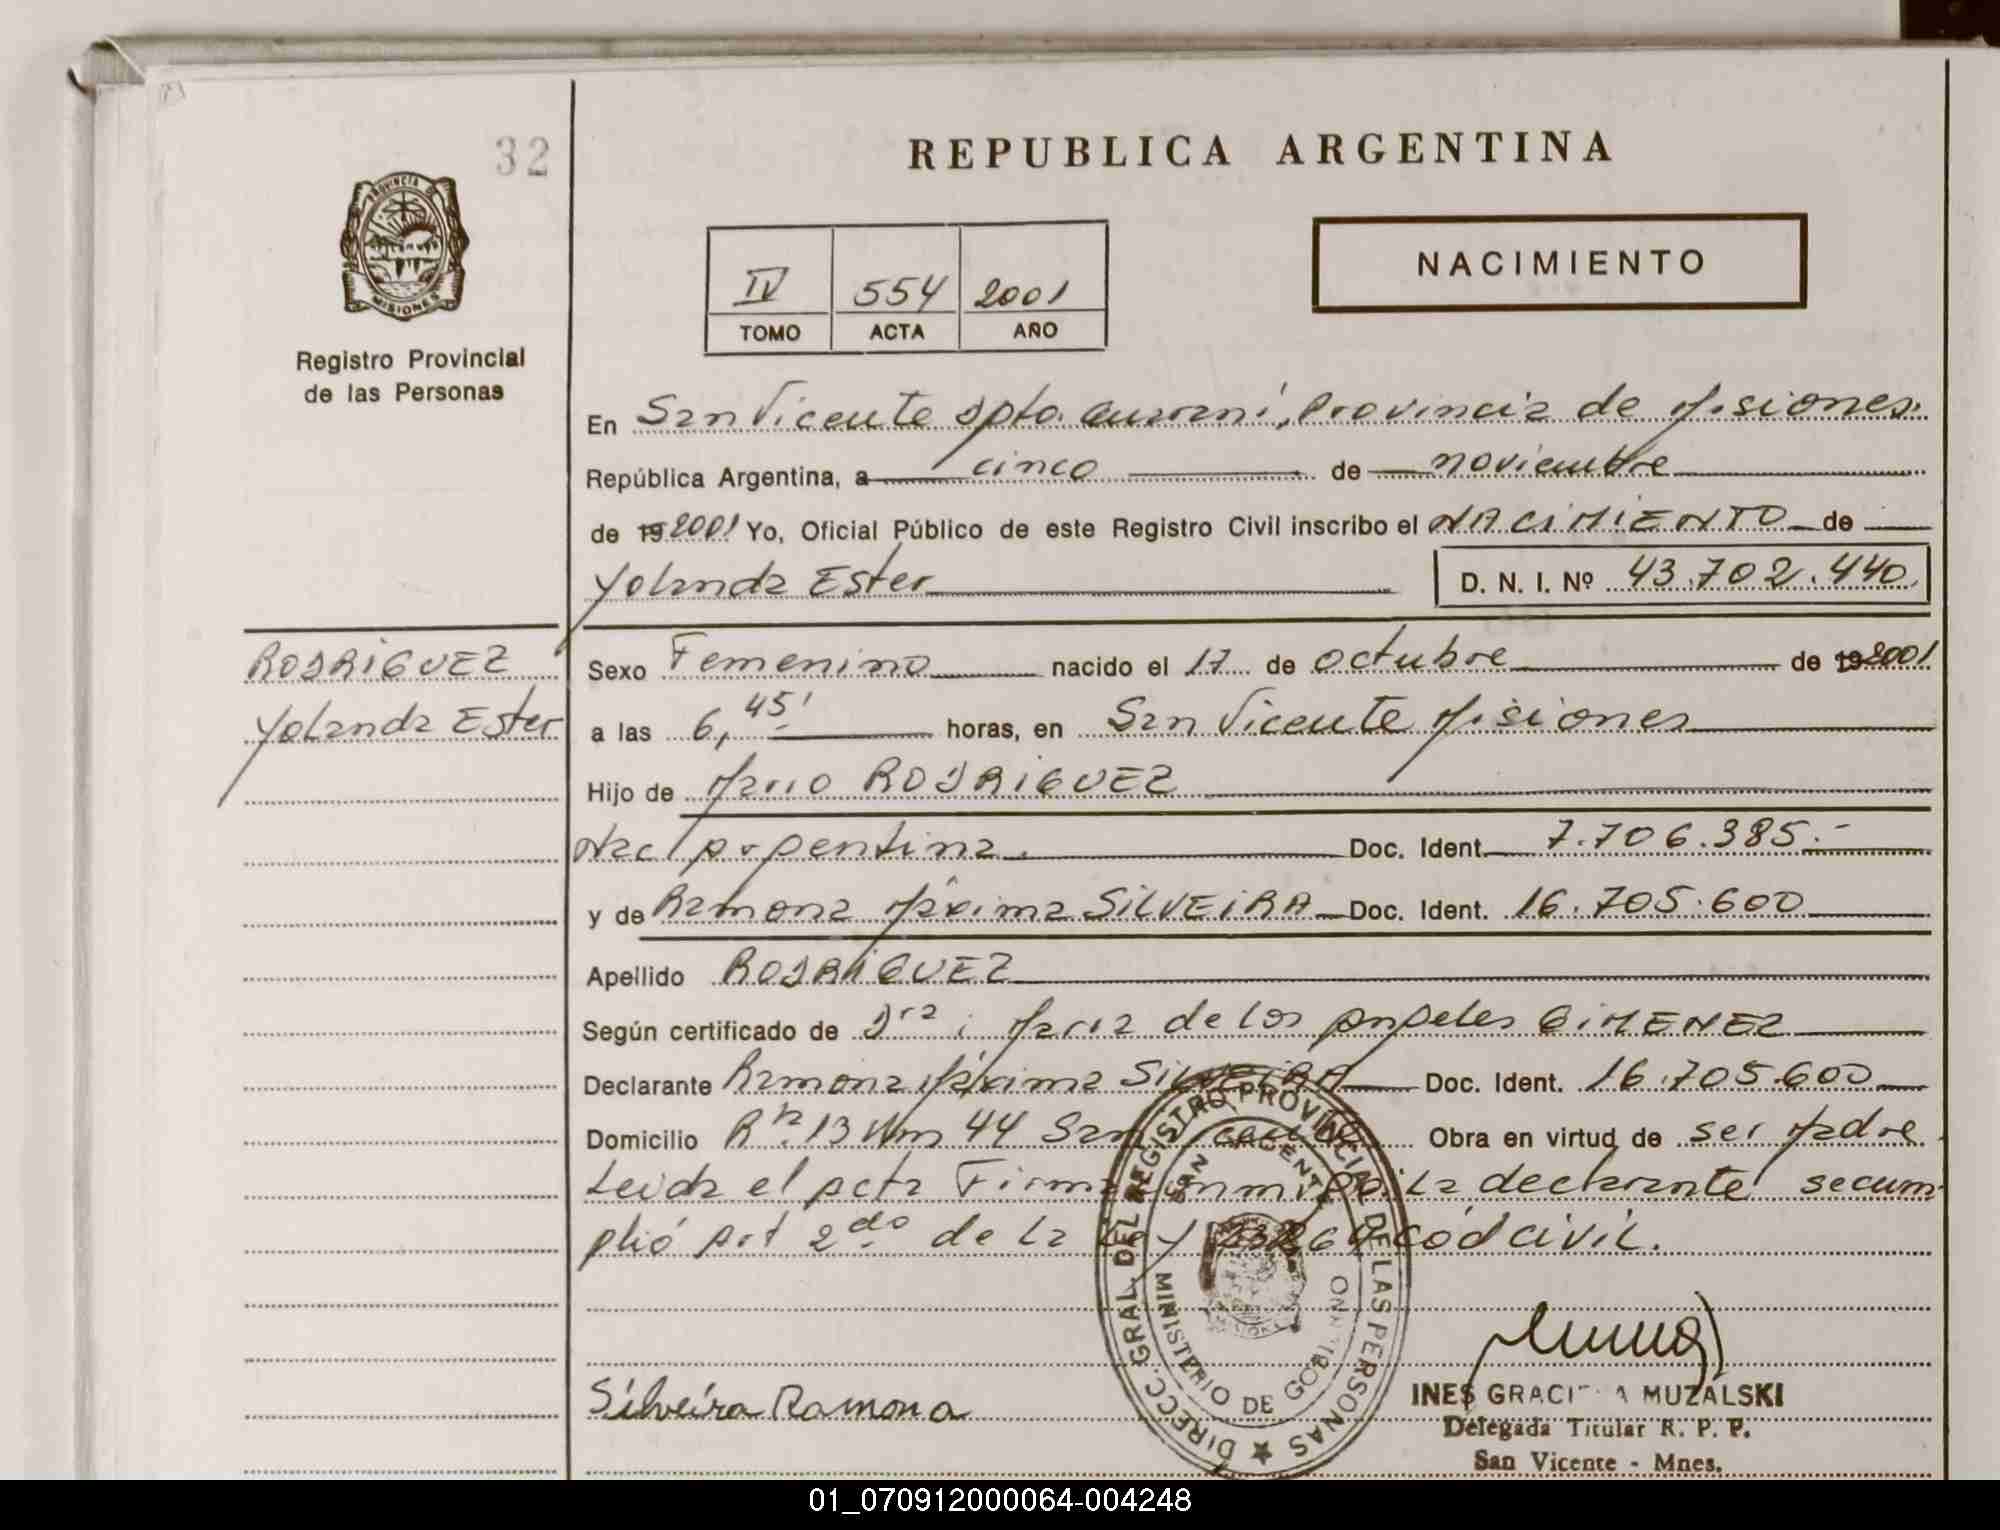 32
REPUBLICA ARGENTINA
PROVINCIA DE
MISIONES
Registro Provincial
de las Personas
IV 554 2001
TOMO ACTA AÑO
NACIMIENTO
En San Vicente Dpto. Guaraní, Provincia de Misiones.
República Argentina, a cinco de noviembre
de 19 2001 Yo, Oficial Público de este Registro Civil inscribo el NACIMIENTO de
Yolanda Ester D. N. I. Nº 43.702.440
RODRIGUEZ
Yolanda Ester
Sexo Femenino nacido el 17 de octubre de 19 2001
a las 6,45' horas, en San Vicente Misiones
Hijo de Mario RODRIGUEZ
Nac Argentina. Doc. Ident. 7.706.385.-
y de Ramona Máxima SILVEIRA Doc. Ident. 16.705.600
Apellido RODRIGUEZ
Según certificado de Dra: Maria de los Angeles GIMENEZ
Declarante Ramona Máxima SILVEIRA Doc. Ident. 16.705.600
Domicilio Rta. 13 Km 44 San Vicente Obra en virtud de ser Madre
Leida el acta Firma conmigo la declarante secum-
plió Art 2do de la Ley 23264 cód civil.
DIRECC. GRAL. DEL REGISTRO PROVINCIAL DE LAS PERSONAS
SAN VICENTE
MINISTERIO DE GOBIERNO
Silveira Ramona
INES GRACI A MUZALSKI
Delegada Titular R. P. P.
San Vicente - Mnes.
01_070912000064-004248